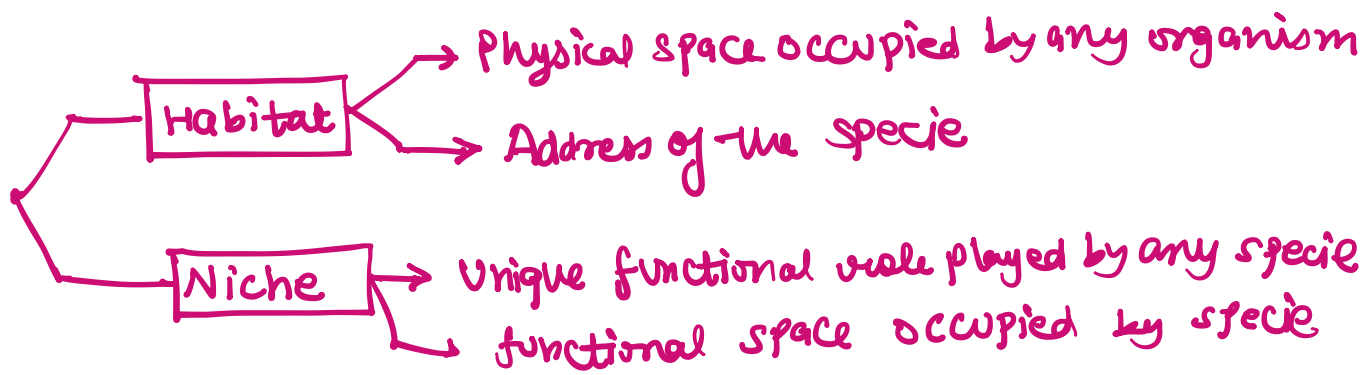 Physical space occupied by any organism
Habitat
Address of the specie
Unique functional role played by any specie
Niche
functional space occupied by specie